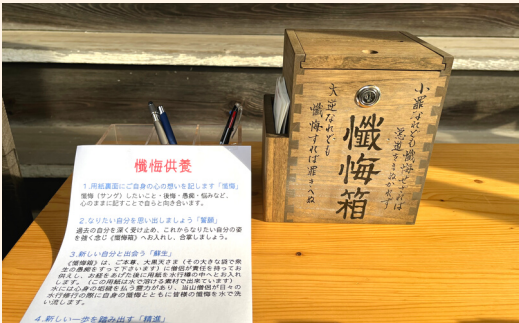 懺悔供養
1.用紙裏面にご自身の心の想いを記します「懺悔」
懺悔（サンゲ）したいこと・後悔・愚痴・悩みなど、
心のままに記すことで自らと向き合います。
2.なりたい自分を思い出しましょう「誓願」
過去の自分を深く受け止め、これからなりたい自分の姿
を強く念じ《懺悔箱》へお入れし、合掌しましょう。
3.新しい自分と出会う「蘇生」
《懺悔箱》は、ご本尊、大黒天さま（その大きな袋で衆
生の愚痴をすって下さいます）に僧侶が責任を持ってお
供えし、お経をあげた後に用紙を水行樽の中へとお入れ
します。（この用紙は水で溶ける素材で出来ています）
水には心身の垢穢を払う霊力があり、当山僧侶が日々の
水行修行の際に自身の懺悔とともに皆様の懺悔を水で洗
い流します。
4.新しい一歩を踏み出す「精進」
小罪なれども懺悔せざれば
悪道をまぬかれず
懺悔箱
大逆なれども
懺悔すれば罪きへぬ